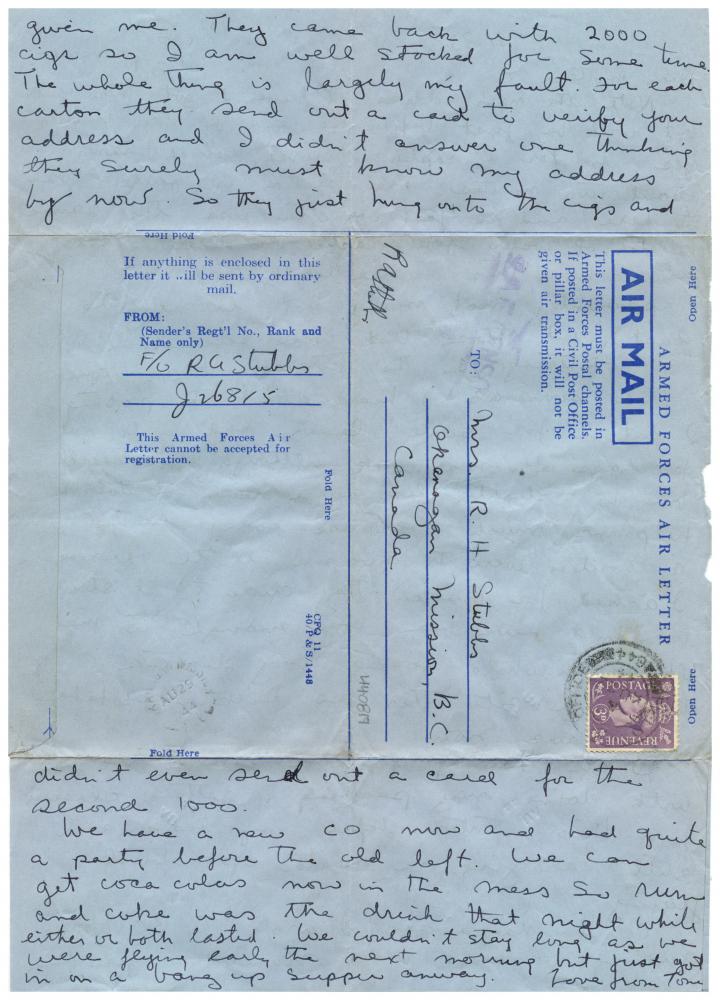 given me. They came back with 2000
cigs so I am well stocked for some time.
The whole thing is largely my fault. For each
carton they send out a card to verify your
address and I didn't answer one thinking
they surely must know my address
by now. So they just hung onto the cigs and
Fold Here
If anything is enclosed in this
letter it ..ill be sent by ordinary
mail.
FROM:
(Sender's Regt'l No., Rank and
Name only)
F/O R A Stubbs
J26815
This Armed Forces Air
Letter cannot be accepted for
registration.
Fold Here
CFQ 11
40/P & S/1448
AU 29
44
Fold Here
Open Here
ARMED FORCES AIR LETTER
Open Here
AIR MAIL
This letter must be posted in
Armed Forces Postal channels.
If posted in a Civil Post Office
or pillar box, it will not be
given air transmission.
TO:
Mrs. R. H Stubbs
Okanagan Mission, B.C.
Canada
RAStubbs
440819
POSTAGE
3D
REVENUE
didn't even send out a card for the
second 1000.
We have a new CO now and had quite
a party before the old left. We can
get coca colas now in the mess so rum
and coke was the drink that night while
either or both lasted. We couldn't stay long as we
were flying early the next morning but just got
in on a bang up supper anyway. Love from Tony